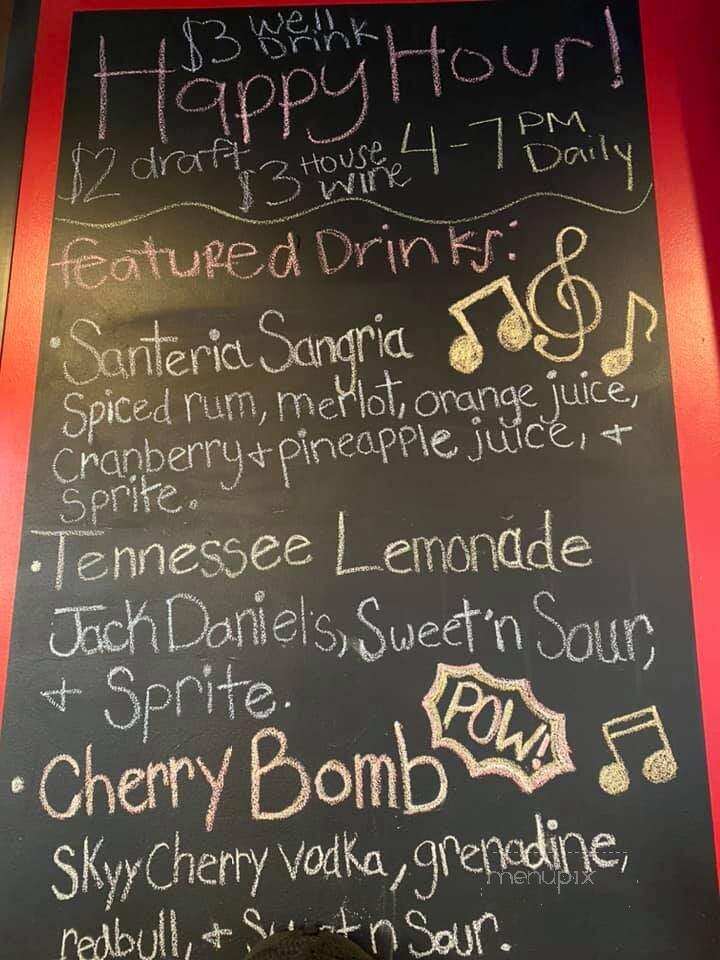 $3 well Drink
Happy Hour!
$2 draft $3 House wine 4-7 PM Daily
featured Drinks:
• Santeria Sangria
Spiced rum, merlot, orange juice,
Cranberry + pineapple juice, +
Sprite.
• Tennessee Lemonade
Jack Daniel's, Sweet'n Sour,
+ Sprite.
POW!
• Cherry Bomb
Skyy Cherry vodka, grenadine,
menupix
redbull, + Sweet n Sour.